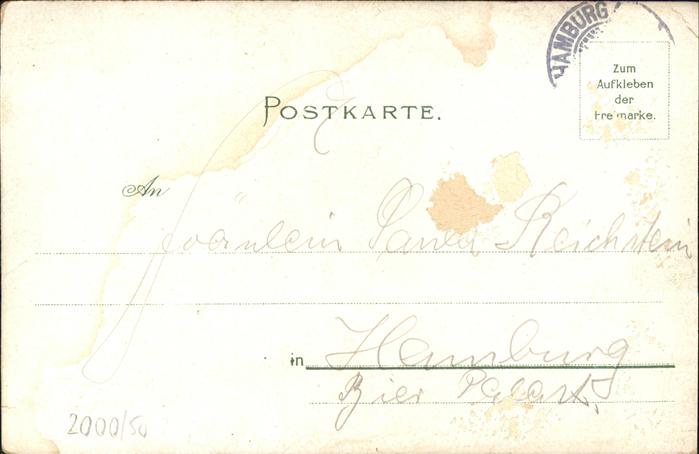 HAMBURG
Zum
Aufkleben
der
Freimarke.
POSTKARTE.
An
Fräulein Paula Reichstein
in Hamburg
Bier Palast
2000/50